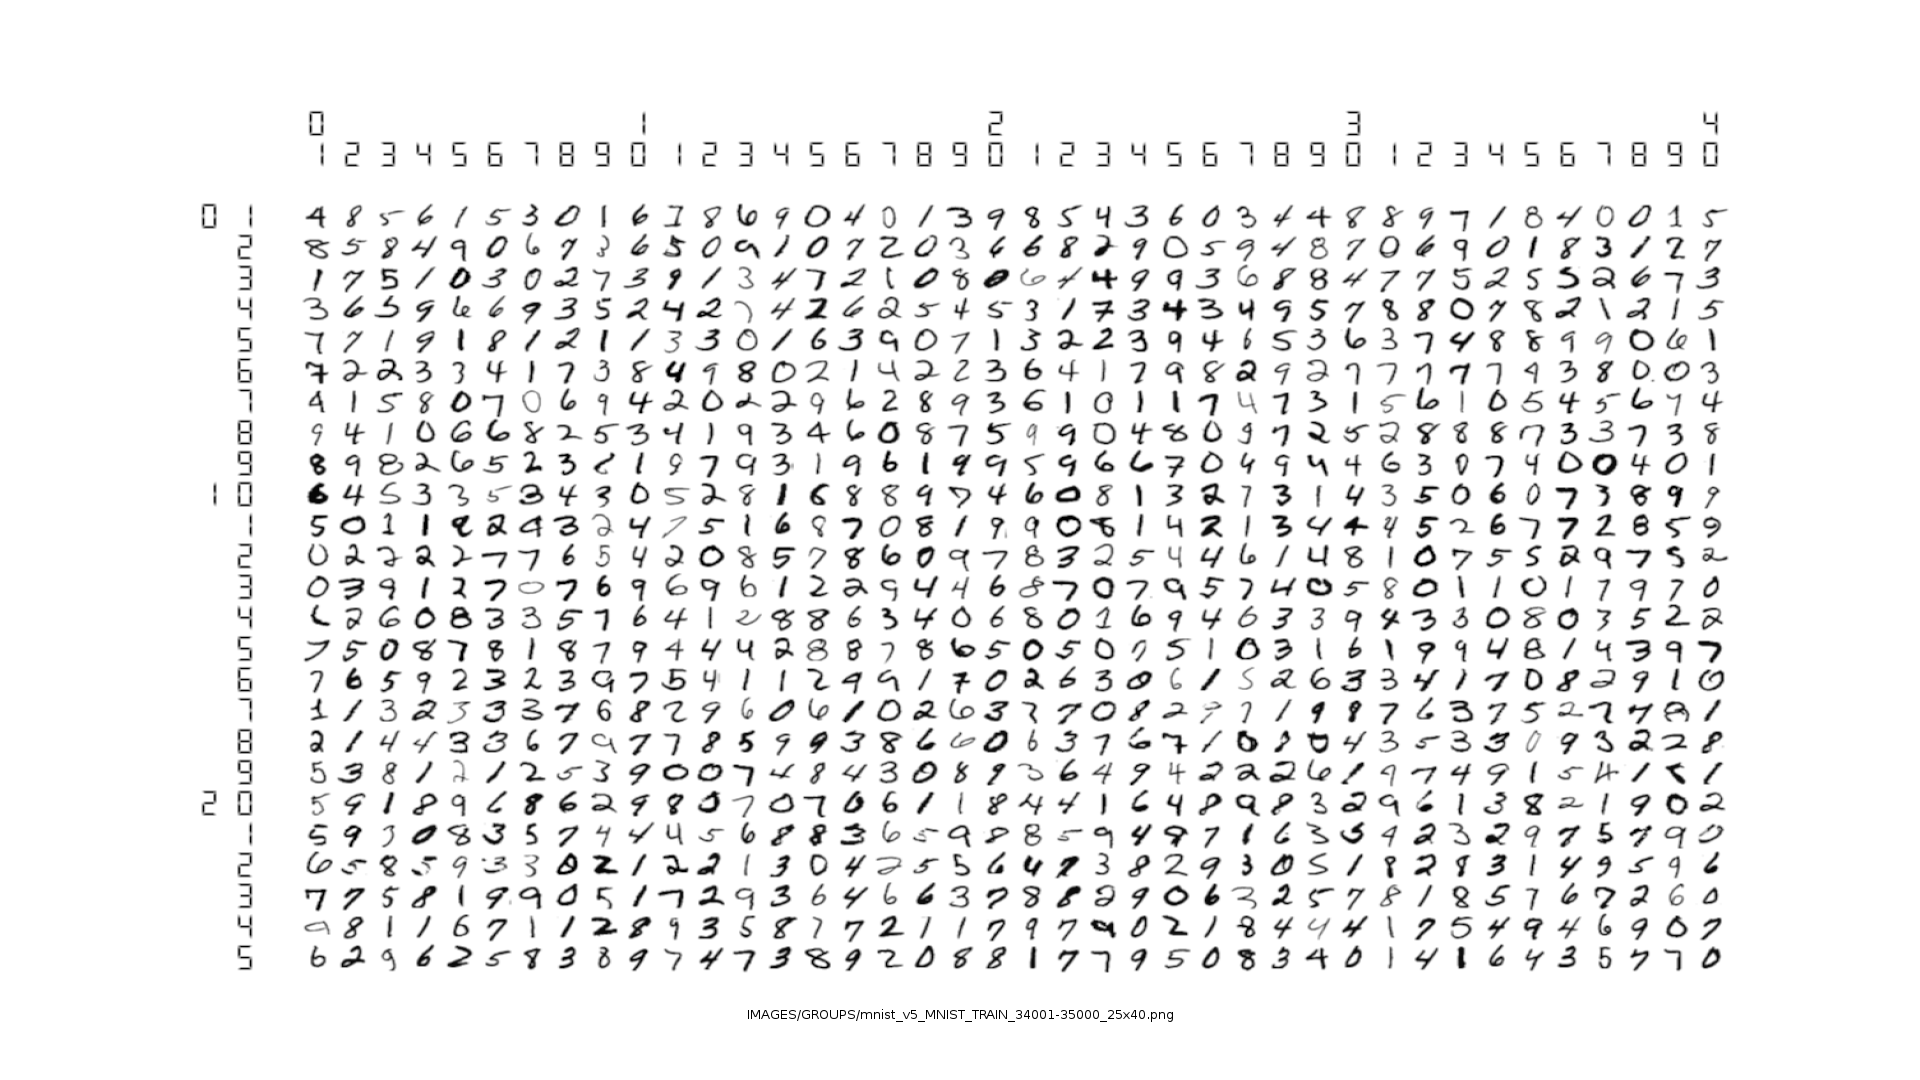 0 1 2 3 4
1 2 3 4 5 6 7 8 9 0 1 2 3 4 5 6 7 8 9 0 1 2 3 4 5 6 7 8 9 0 1 2 3 4 5 6 7 8 9 0
0 1 4 8 5 6 1 5 3 0 1 6 1 8 6 9 0 4 0 1 3 9 8 5 4 3 6 0 3 4 4 8 8 9 7 1 8 4 0 0 1 5
2 8 5 8 4 9 0 6 7 3 6 5 0 9 1 0 7 2 0 3 6 6 8 2 9 0 5 9 4 8 7 0 6 9 0 1 8 3 1 2 7
3 1 7 5 1 0 3 0 2 7 3 9 1 3 4 7 2 1 0 8 0 6 4 4 9 9 3 6 8 8 4 7 7 5 2 5 5 2 6 7 3
4 3 6 5 9 6 6 9 3 5 2 4 2 7 4 2 6 2 5 4 5 3 1 7 3 4 3 4 9 5 7 8 8 0 7 8 2 1 2 1 5
5 7 7 1 9 1 8 1 2 1 1 3 3 0 1 6 3 9 0 7 1 3 2 2 3 9 4 6 5 3 6 3 7 4 8 8 9 9 0 6 1
6 7 2 2 3 3 4 1 7 3 8 4 9 8 0 2 1 4 2 2 3 6 4 1 7 9 8 2 9 2 7 7 7 7 7 9 3 8 0 0 3
7 4 1 5 8 0 7 0 6 9 4 2 0 2 2 9 6 2 8 9 3 6 1 0 1 1 7 4 7 3 1 5 6 1 0 5 4 5 6 9 4
8 9 4 1 0 6 6 8 2 5 3 4 1 9 3 4 6 0 8 7 5 9 9 0 4 8 0 9 7 2 5 2 8 8 8 7 3 3 7 3 8
9 8 9 8 2 6 5 2 3 8 1 9 7 9 3 1 9 6 1 9 9 5 9 6 6 7 0 4 9 4 4 6 3 0 7 4 0 0 4 0 1
1 0 6 4 5 3 3 5 3 4 3 0 5 2 8 1 6 8 8 9 7 4 6 0 8 1 3 2 7 3 1 4 3 5 0 6 0 7 3 8 9 9
1 5 0 1 1 8 2 9 3 2 4 7 5 1 6 8 7 0 8 1 9 9 0 8 1 4 2 1 3 4 4 4 5 2 6 7 7 2 8 5 9
2 0 2 2 2 2 7 7 6 5 4 2 0 8 5 7 8 6 0 9 7 8 3 2 5 4 4 6 1 4 8 1 0 7 5 5 2 9 7 5 2
3 0 3 9 1 2 7 0 7 6 9 6 9 6 1 2 2 9 4 4 6 8 7 0 7 9 5 7 4 0 5 8 0 1 1 0 1 7 9 7 0
4 6 2 6 0 8 3 3 5 7 6 4 1 2 8 8 6 3 4 0 6 8 0 1 6 9 4 6 3 3 9 4 3 3 0 8 0 3 5 2 2
5 7 5 0 8 7 8 1 8 7 9 4 4 4 2 8 8 7 8 6 5 0 5 0 7 5 1 0 3 1 6 1 9 9 4 8 1 4 3 9 7
6 7 6 5 9 2 3 2 3 9 7 5 4 1 1 2 9 9 1 7 0 2 6 3 0 6 1 5 2 6 3 3 4 1 7 0 8 2 9 1 0
7 1 1 3 2 3 3 3 7 6 8 2 9 6 0 6 1 0 2 6 3 7 7 0 8 2 9 7 1 9 8 7 6 3 7 5 2 7 7 8 1
8 2 1 4 4 3 3 6 7 9 7 7 8 5 9 9 3 8 6 6 0 6 3 7 6 7 1 0 8 0 4 3 5 3 3 0 9 3 2 2 8
9 5 3 8 1 2 1 2 5 3 9 0 0 7 4 8 4 3 0 8 9 3 6 4 9 4 2 2 2 6 1 9 7 4 9 1 5 4 1 5 1
2 0 5 9 1 8 9 6 8 6 2 9 8 0 7 0 7 0 6 1 1 8 4 4 1 6 4 8 9 8 3 2 9 6 1 3 8 2 1 9 0 2
1 5 9 3 0 8 3 5 7 4 4 4 5 6 8 8 3 6 5 9 8 8 5 9 4 9 7 1 6 3 5 9 2 3 2 9 7 5 7 9 0
2 6 5 8 5 9 3 3 0 2 1 2 2 1 3 0 4 2 5 5 6 4 7 3 8 2 9 3 0 5 1 8 2 8 3 1 4 9 5 9 6
3 7 7 5 8 1 9 9 0 5 1 7 2 9 3 6 4 6 6 3 7 8 8 2 9 0 6 3 2 5 7 8 1 8 5 7 6 7 2 6 0
4 9 8 1 1 6 7 1 1 2 8 9 3 5 8 7 7 2 1 1 7 9 7 9 0 2 1 8 4 4 4 1 7 5 4 9 4 6 9 0 7
5 6 2 9 6 2 5 8 3 8 9 7 4 7 3 8 9 2 0 8 8 1 7 7 9 5 0 8 3 4 0 1 4 1 6 4 3 5 7 7 0
IMAGES/GROUPS/mnist_v5_MNIST_TRAIN_34001-35000_25x40.png